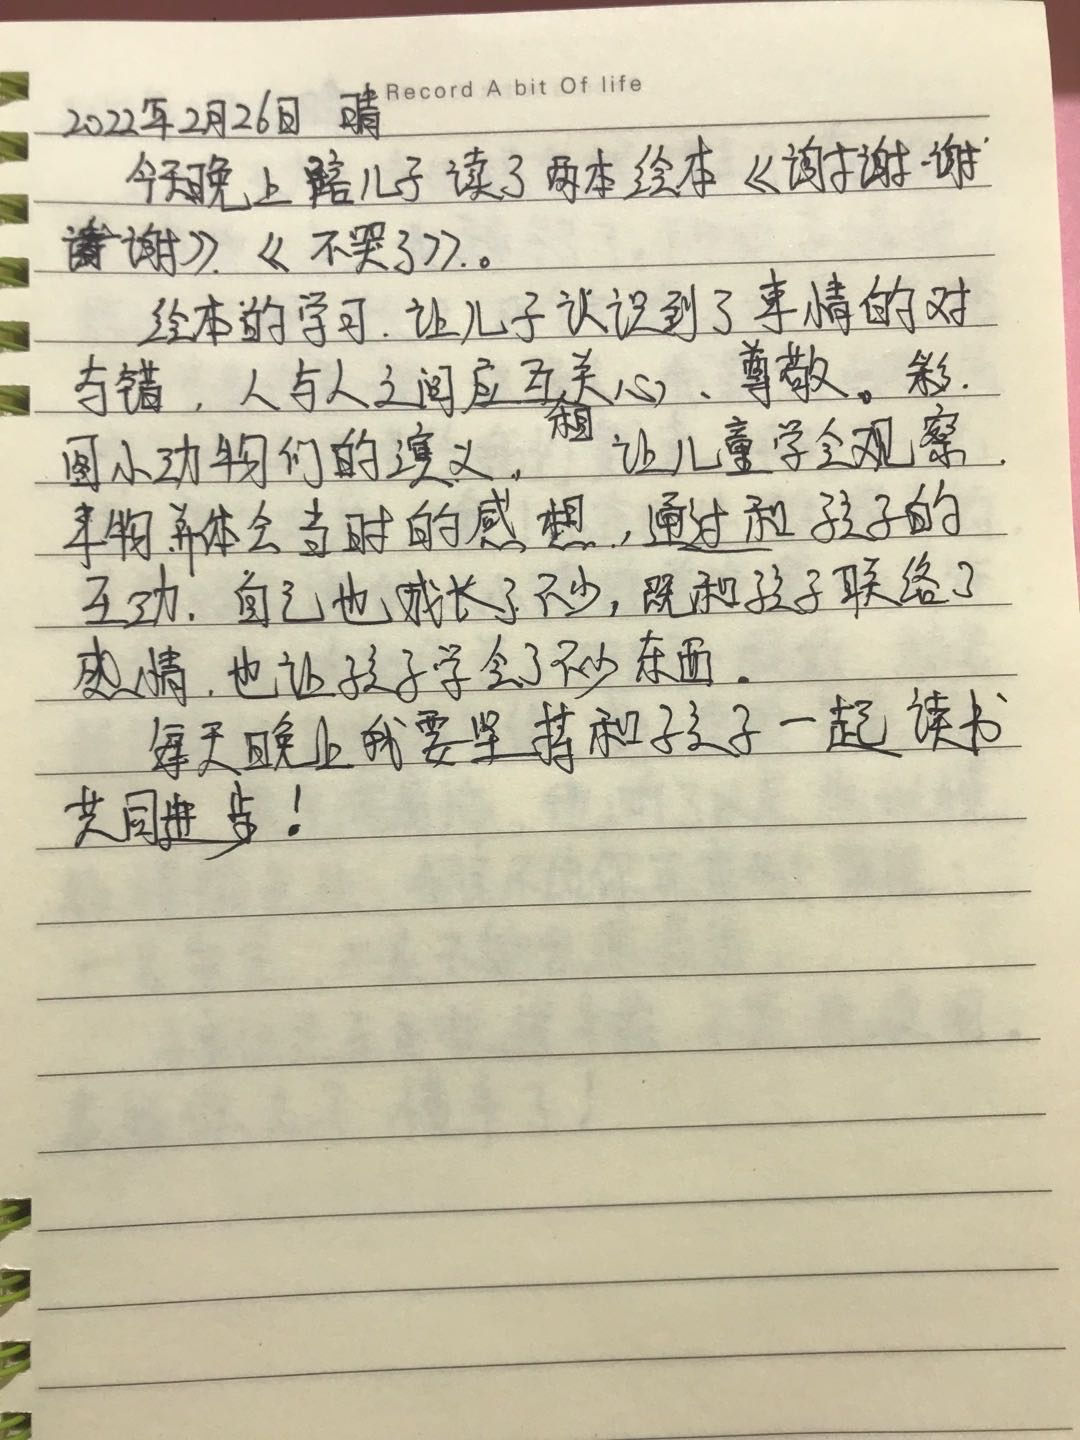 Record A bit Of life
2022年2月26日 晴
今天晚上陪儿子读了两本绘本《谢谢·谢
谢》、《不哭了》。
绘本的学习,让儿子认识到了事情的对
与错,人与人之间应互相关心、尊敬。彩
图小动物们的演义,让儿童学会观察
事物并体会当时的感想,通过和孩子的
互动,自己也成长了不少,既和孩子联络了
感情,也让孩子学会了不少东西.
每天晚上我要坚持和孩子一起读书
共同进步!